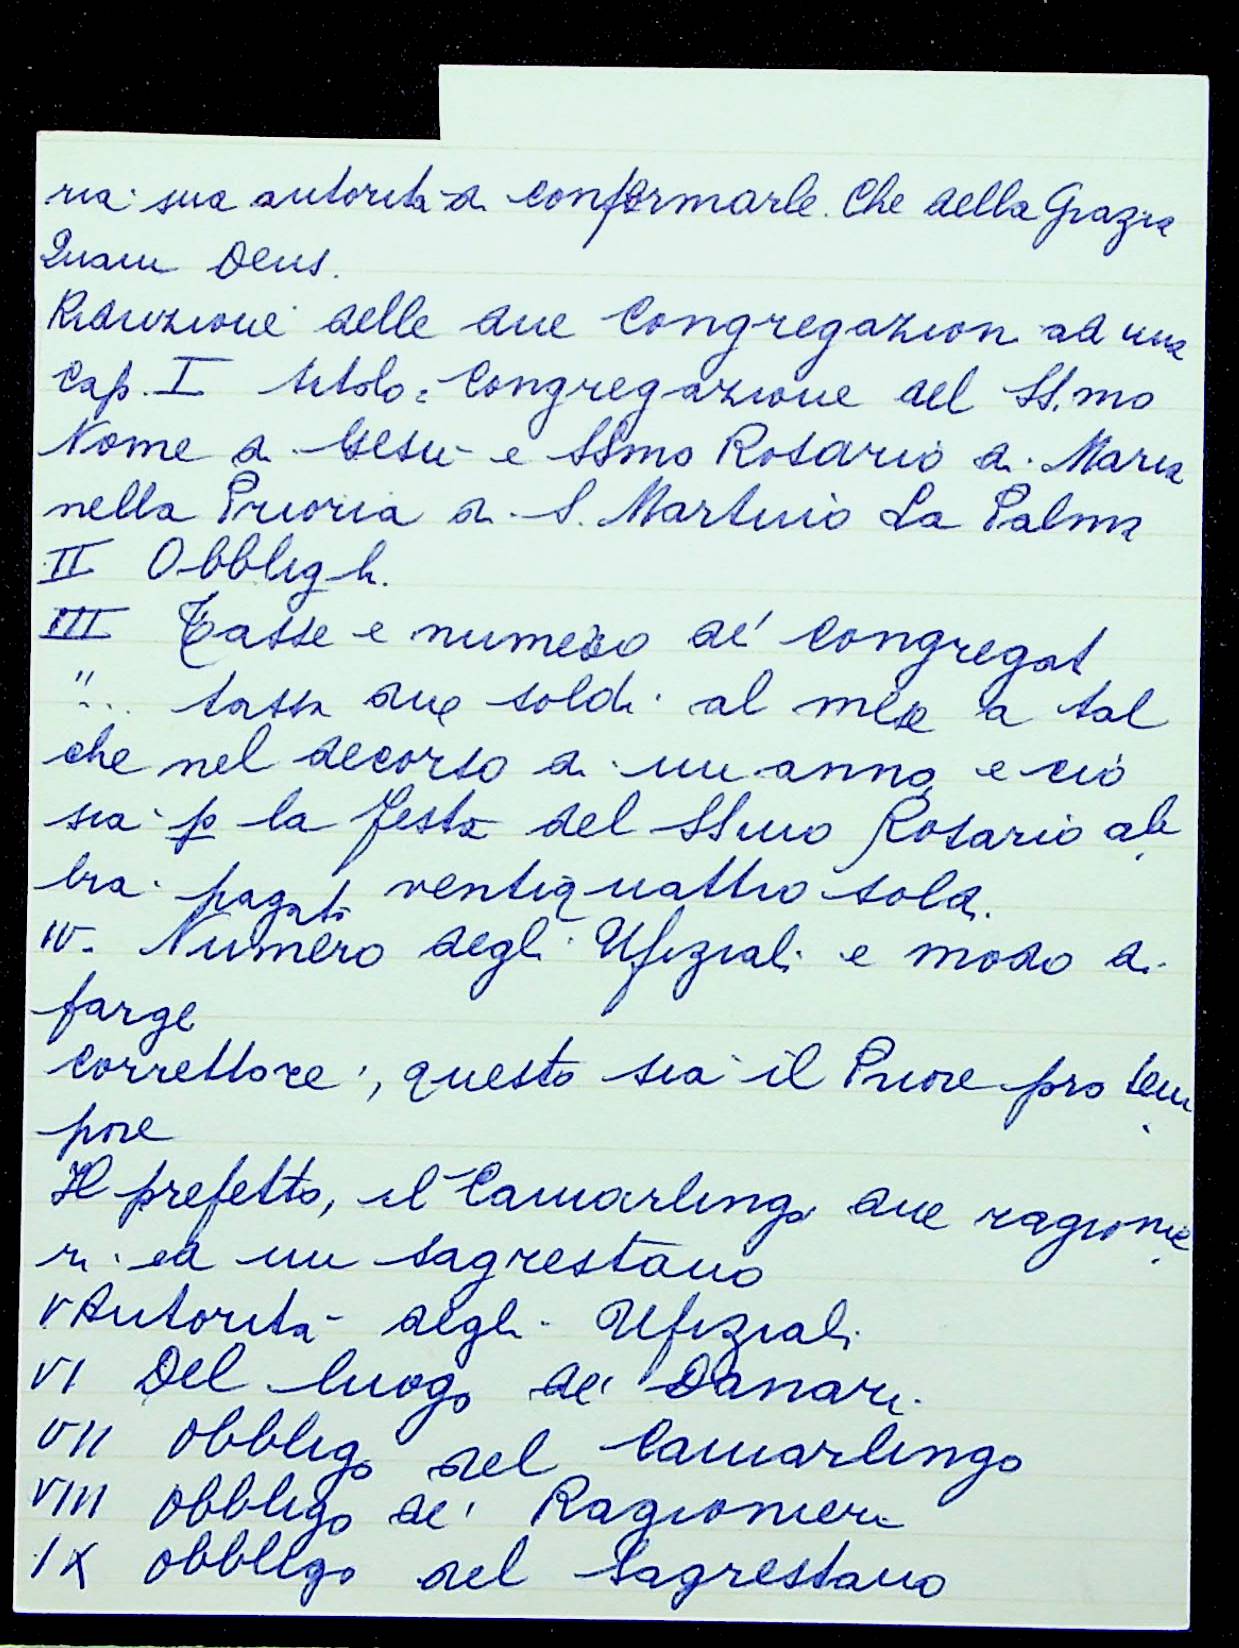 ria sua autorità di confermarle. Che della Grazia
Quam Deus.
Riduzione delle due Congregazioni ad una
Cap. I titolo = Congregazione del SS.mo
Nome di Gesù e SSmo Rosario di Maria
nella Prioria di S. Martino La Palma
II Obblighi.
III Tasse e numero de' congregat
"... tassa due soldi al mese a tal
che nel decorso di un anno, e ciò
sia p la festa del SSmo Rosario ab
bia pagati ventiquattro soldi.
IV. Numero degli Ufiziali e modo di
fargli
Correttore, questo sia il Priore pro tem
pore
Il prefetto, il Camarlingo due ragionie
ri ed un sagrestano
V Autorità degli Ufiziali
VI Del luogo de' Danari.
VII Obbligo del Camarlingo
VIII Obbligo de' Ragionieri
IX Obbligo del Sagrestano